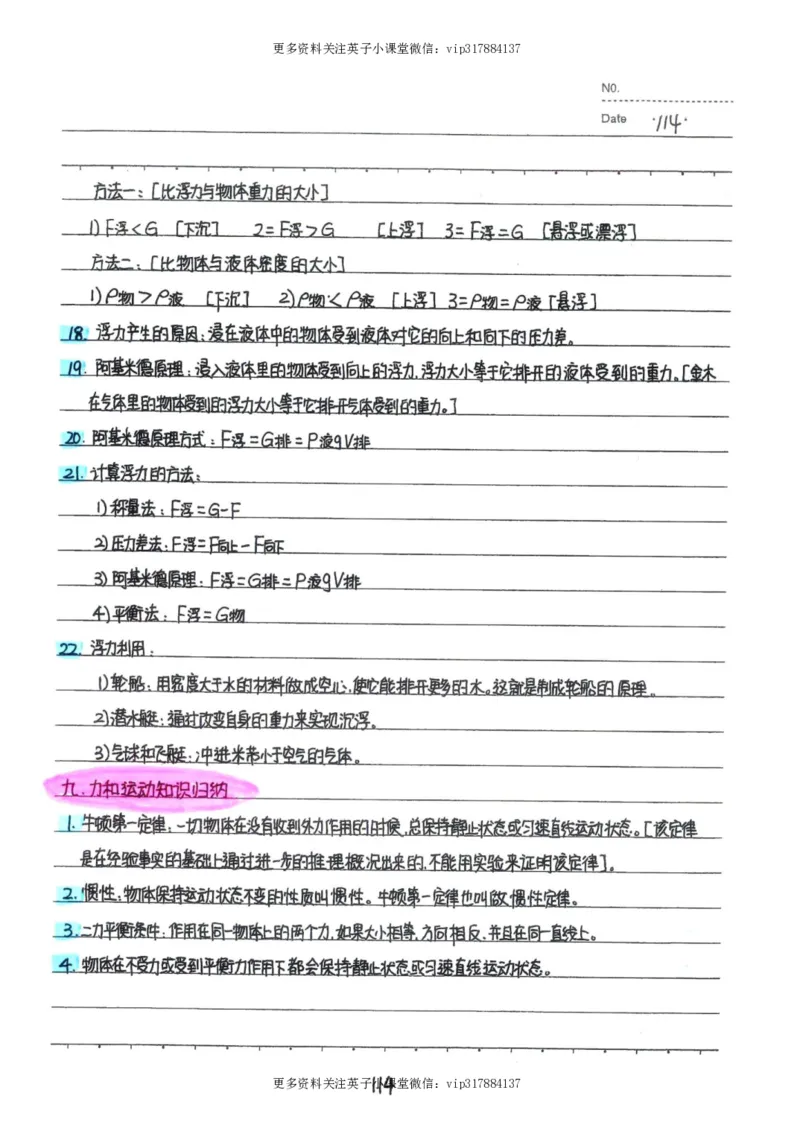 更多资料关注英子小课堂微信：vip317884137
NO.
Date ·114·
方法一：[比浮力与物体重力的大小]
1) F浮<G [下沉] 2= F浮>G [上浮] 3= F浮=G [悬浮或漂浮]
方法二：[比物体与液体密度的大小]
1) ρ物>ρ液 [下沉] 2) ρ物<ρ液 [上浮] 3=ρ物=ρ液[悬浮]
18. 浮力产生的原因：浸在液体中的物体受到液体对它的向上和向下的压力差。
19. 阿基米德原理：浸入液体里的物体受到向上的浮力，浮力大小等于它排开的液体受到的重力。[金木
在气体里的物体受到的浮力大小等于它排开气体受到的重力。]
20. 阿基米德原理方式：F浮=G排=ρ液gV排
21. 计算浮力的方法：
1)秤量法：F浮=G-F
2)压力差法：F浮=F向上-F向下
3)阿基米德原理：F浮=G排=ρ液gV排
4)平衡法：F浮=G物
22. 浮力利用：
1)轮船：用密度大于水的材料做成空心，使它能排开更多的水。这就是制成轮船的原理。
2)潜水艇：通过改变自身的重力来实现沉浮。
3)气球和飞艇：冲进米芾小于空气的气体。
九．力和运动知识归纳
1. 牛顿第一定律：一切物体在没有收到外力作用的时候，总保持静止状态或匀速直线运动状态。[该定律
是在经验事实的基础上通过进一步的推理概况出来的，不能用实验来证明该定律]。
2. 惯性：物体保持运动状态不变的性质叫惯性。牛顿第一定律也叫做惯性定律。
3. 二力平衡条件：作用在同一物体上的两个力，如果大小相等，方向相反，并且在同一直线上。
4. 物体在不受力或受到平衡力作用下都会保持静止状态或匀速直线运动状态。
更多资料关注英子小课堂微信：vip317884137
114